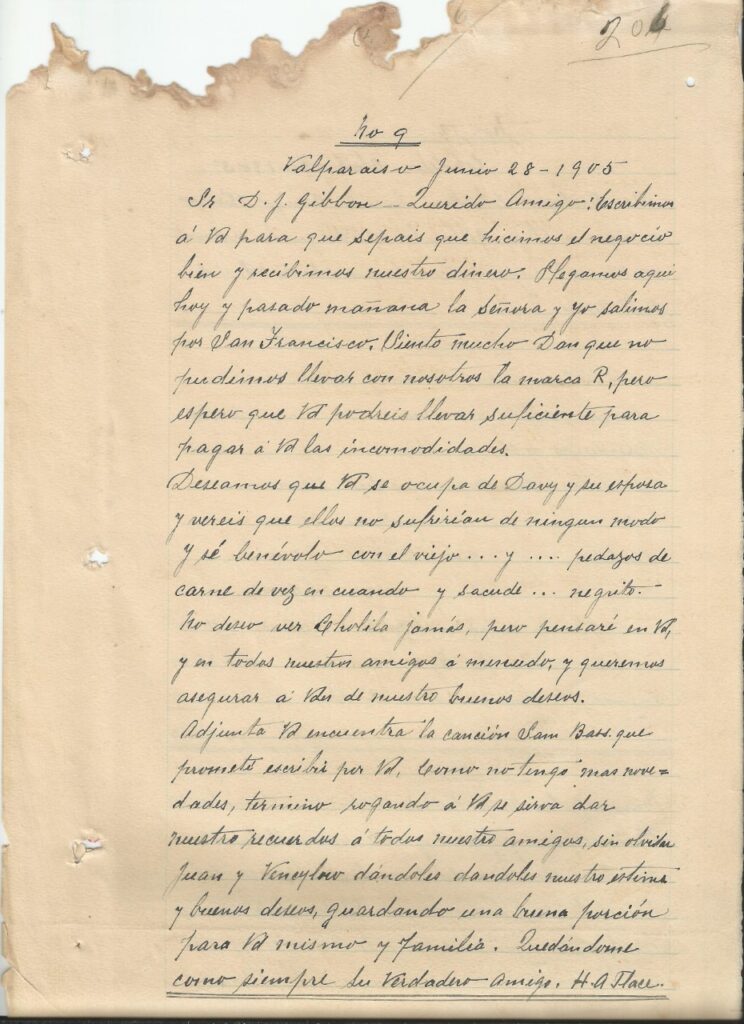 204
No 9
Valparaiso Junio 28-1905
Sr D. J. Gibbon Querido Amigo: Escribimos
á Vd para que sepais que hicimos el negocio
bien y recibimos nuestro dinero. Llegamos aqui
hoy y pasado mañana la señora y yo salimos
por San Francisco. Siento mucho Dan que no
pudimos llevar con nosotros la marca R, pero
espero que Vd podreis llevar suficiente para
pagar á Vd las incomodidades.
Deseamos que Vd se ocupa de Davy y su esposa
y vereis que ellos no sufririan de ningun modo
y sé benévolo con el viejo ... y .... pedazos de
carne de vez en cuando y sacude ... negrito.-
No deseo ver Cholila jamás, pero pensaré en Vd,
y en todos nuestros amigos á menudo, y queremos
asegurar á Vden de nuestro buenos deseos.
Adjunta Vd encuentra la canción Sam Bass. que
prometé escribir por Vd, Como no tengo mas nove=
dades, termino rogando á Vd se sirva dar
nuestro recuerdos á todos nuestro amigos, sin olvidar
Juan y Vencylow dándoles dandoles nuestro estima
y buenos deseos, guardando una buena porción
para Vd mismo y familia. Quedándome
como siempre su Verdadero Amigo. H. A Place.